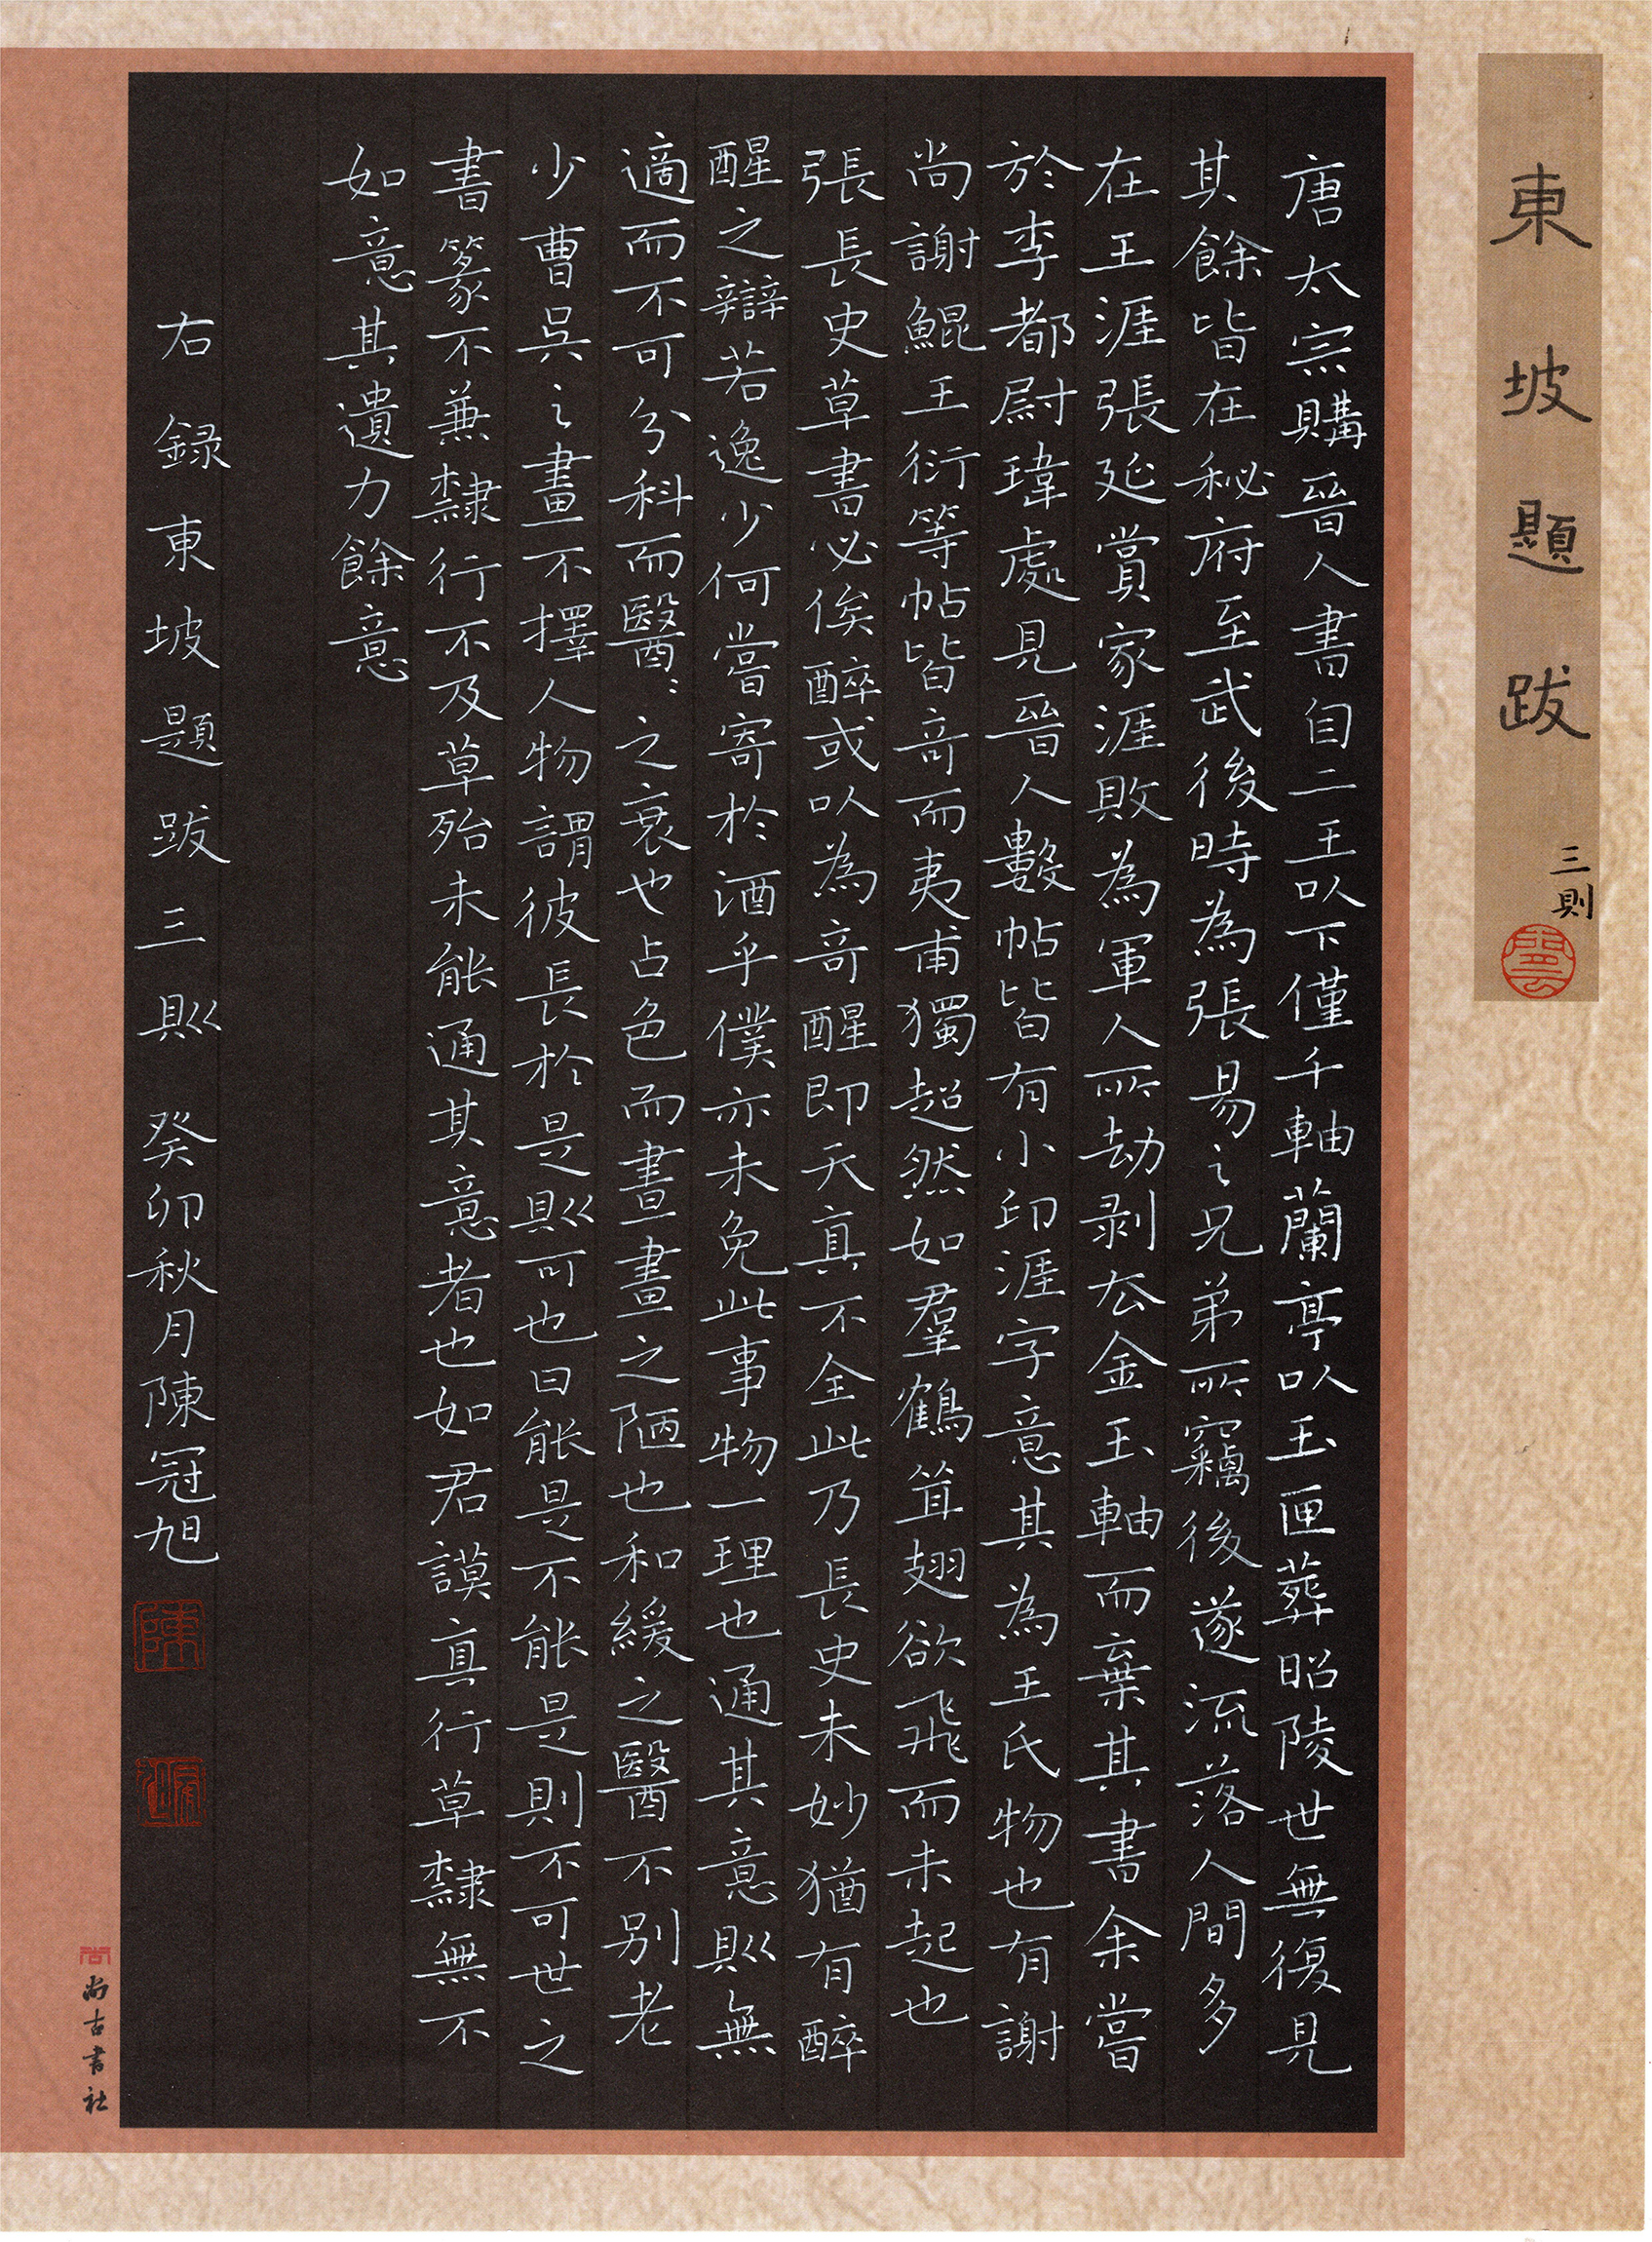 東坡題跋
三則
唐太宗購晉人書自二王以下僅千軸蘭亭以玉匣葬昭陵世無復見
其餘皆在秘府至武後時為張易之兄弟所竊後遂流落人間多
在王涯張延賞家涯敗為軍人所劫剥去金玉軸而棄其書余嘗
於李都尉瑋處見晉人數帖皆有小印涯字意其為王氏物也有謝
尚謝鯤王衍等帖皆奇而夷甫獨超然如羣鶴聳翅欲飛而未起也
張長史草書必俟醉或以為奇醒即天真不全此乃長史未妙猶有醉
醒之辯若逸少何嘗寄於酒乎僕亦未免此事物一理也通其意則無
適而不可分科而醫〻之衰也占色而畫畫之陋也和緩之醫不别老
少曹吳之畫不擇人物謂彼長於是則可也曰能是不能是則不可世之
書篆不兼隸行不及草殆未能通其意者也如君謨真行草隸無不
如意其遺力餘意
右録東坡題跋三則 癸卯秋月陳冠旭
尚古書社